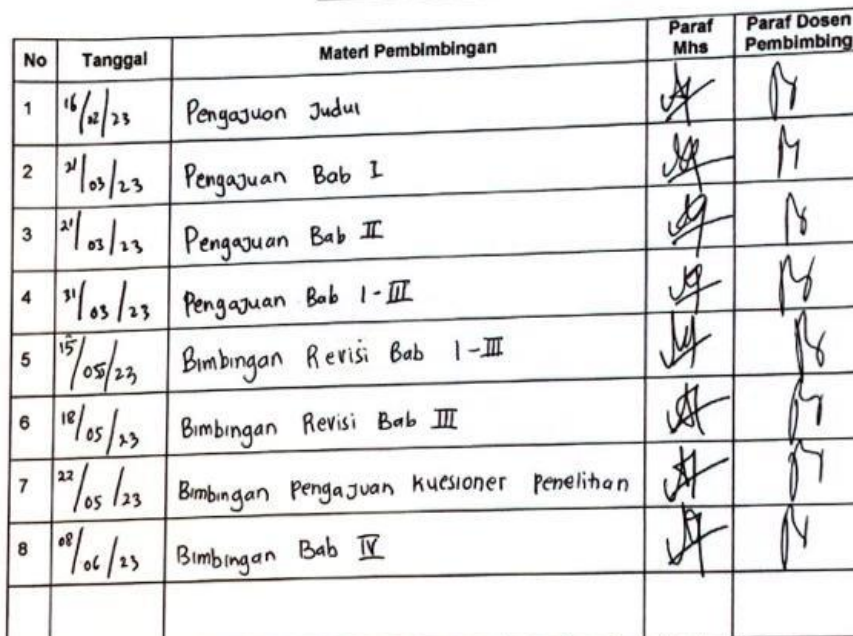 No Tanggal Materi Pembimbingan Paraf Mhs Paraf Dosen Pembimbing
1 16/02/23 Pengajuan Judul
2 21/03/23 Pengajuan Bab I
3 21/03/23 Pengajuan Bab II
4 31/03/23 Pengajuan Bab I-III
5 15/05/23 Bimbingan Revisi Bab I-III
6 18/05/23 Bimbingan Revisi Bab III
7 22/05/23 Bimbingan Pengajuan Kuesioner Penelitian
8 08/06/23 Bimbingan Bab IV